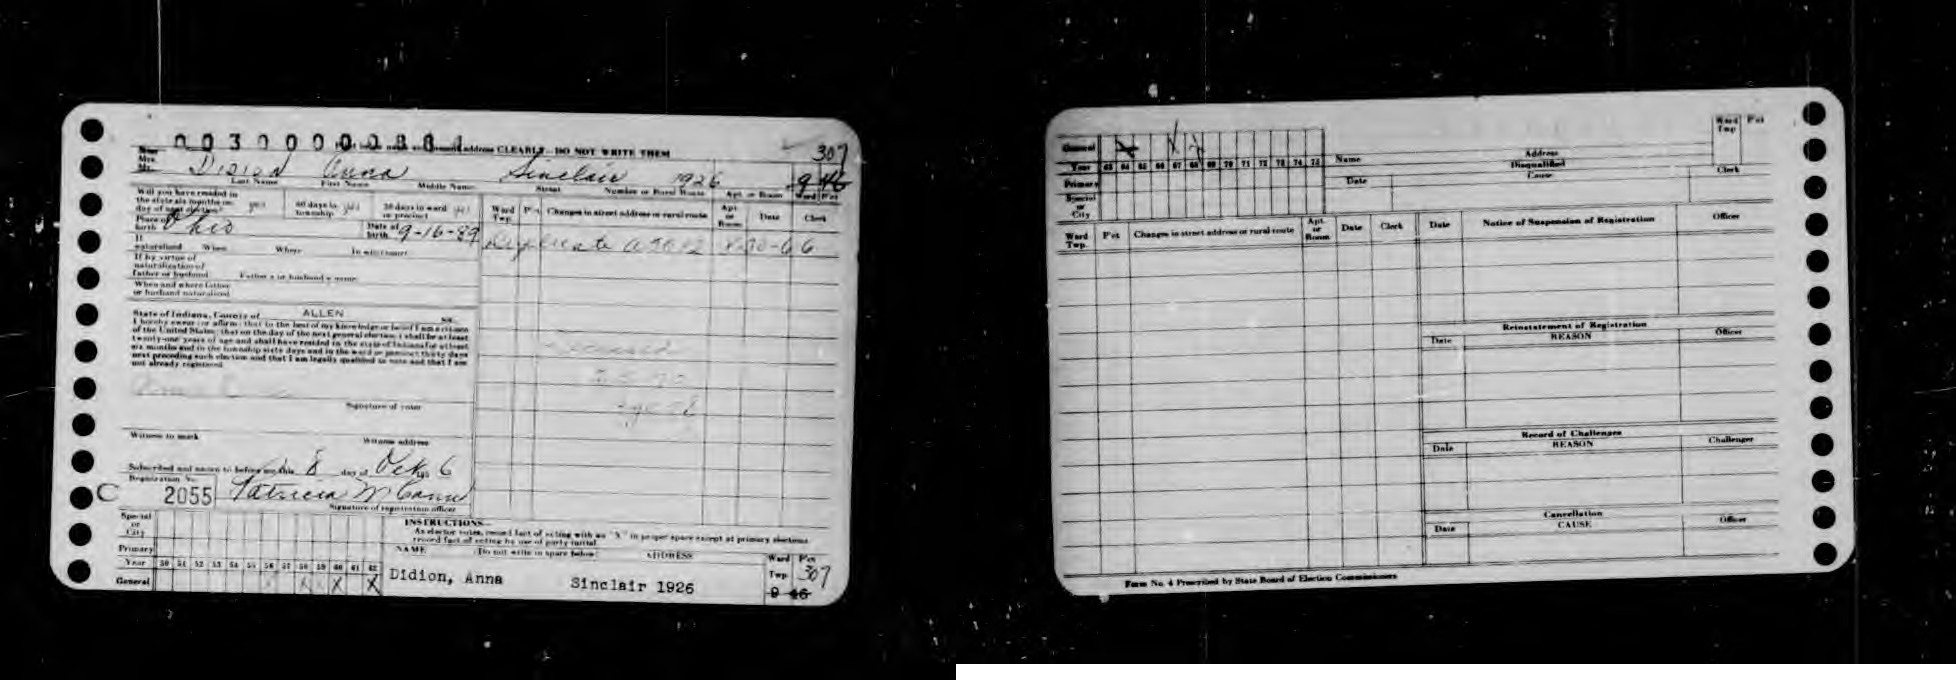 0030000088
address CLEARLY—DO NOT WRITE THEM
307
Miss
Mrs.
Mr.
Didion Anna Sinclair 1926 9 46
Last Name First Name Middle Name Street Number or Rural Route Apt. or Room Ward Pct
Will you have resided in
the state six months on
day of next election? yes
60 days in
township yes
30 days in ward
or precinct yes
Ward
Twp.
Pct. Changes in street address or rural route
Apt.
or
Room
Date Clerk
Place of
birth Ohio
Date of
birth 9-16-89
Duplicate
If
naturalized When Where In what court
If by virtue of
naturalization of
father or husband Father's or husband's name
When and where father
or husband naturalized
State of Indiana, County of ALLEN SS:
I hereby swear (or affirm) that to the best of my knowledge or belief I am a citizen
of the United States; that on the day of the next general election, I shall be at least
twenty-one years of age and shall have resided in the state of Indiana for at least
six months and in the township sixty days and in the ward or precinct thirty days
next preceding such election and that I am legally qualified to vote and that I am
not already registered.
Signature of voter
Witness to mark Witness address
Subscribed and sworn to before me this 8 day of 195 6
Registration No.
C 2055 Patricia McCann
Signature of registration officer
Special
or
City
Primary
Year 50 51 52 53 54 55 56 57 58 59 60 61 62
General X X X X
INSTRUCTIONS—
As elector votes, record fact of voting with an "X" in proper space except at primary elections
record fact of voting by use of party initial.
NAME (Do not write in space below) ADDRESS
Ward Pct
Twp 307
Didion, Anna Sinclair 1926
9 46
General X X X
Year 63 64 65 66 67 68 69 70 71 72 73 74 75
Primary
Special
or
City
Name Address
Ward
Twp
Pct
Disqualified
Date Cause Clerk
Ward
Twp.
Pct Changes in street address or rural route
Apt.
or
Room
Date Clerk
Date Notice of Suspension of Registration Officer
Reinstatement of Registration
Date REASON Officer
Record of Challenges
Date REASON Challenger
Cancellation
Date CAUSE Officer
Form No. 4 Prescribed by State Board of Election Commissioners